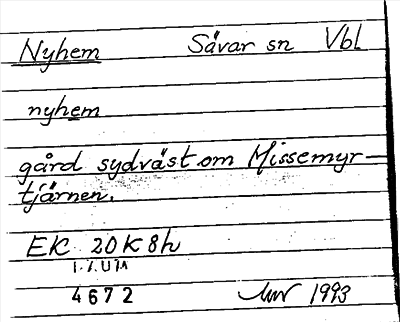 Nyhem Sävar sn Vbl
nyhem
gård sydväst om Missemyr-
tjärnen.
EK 20K8h
4672 1993